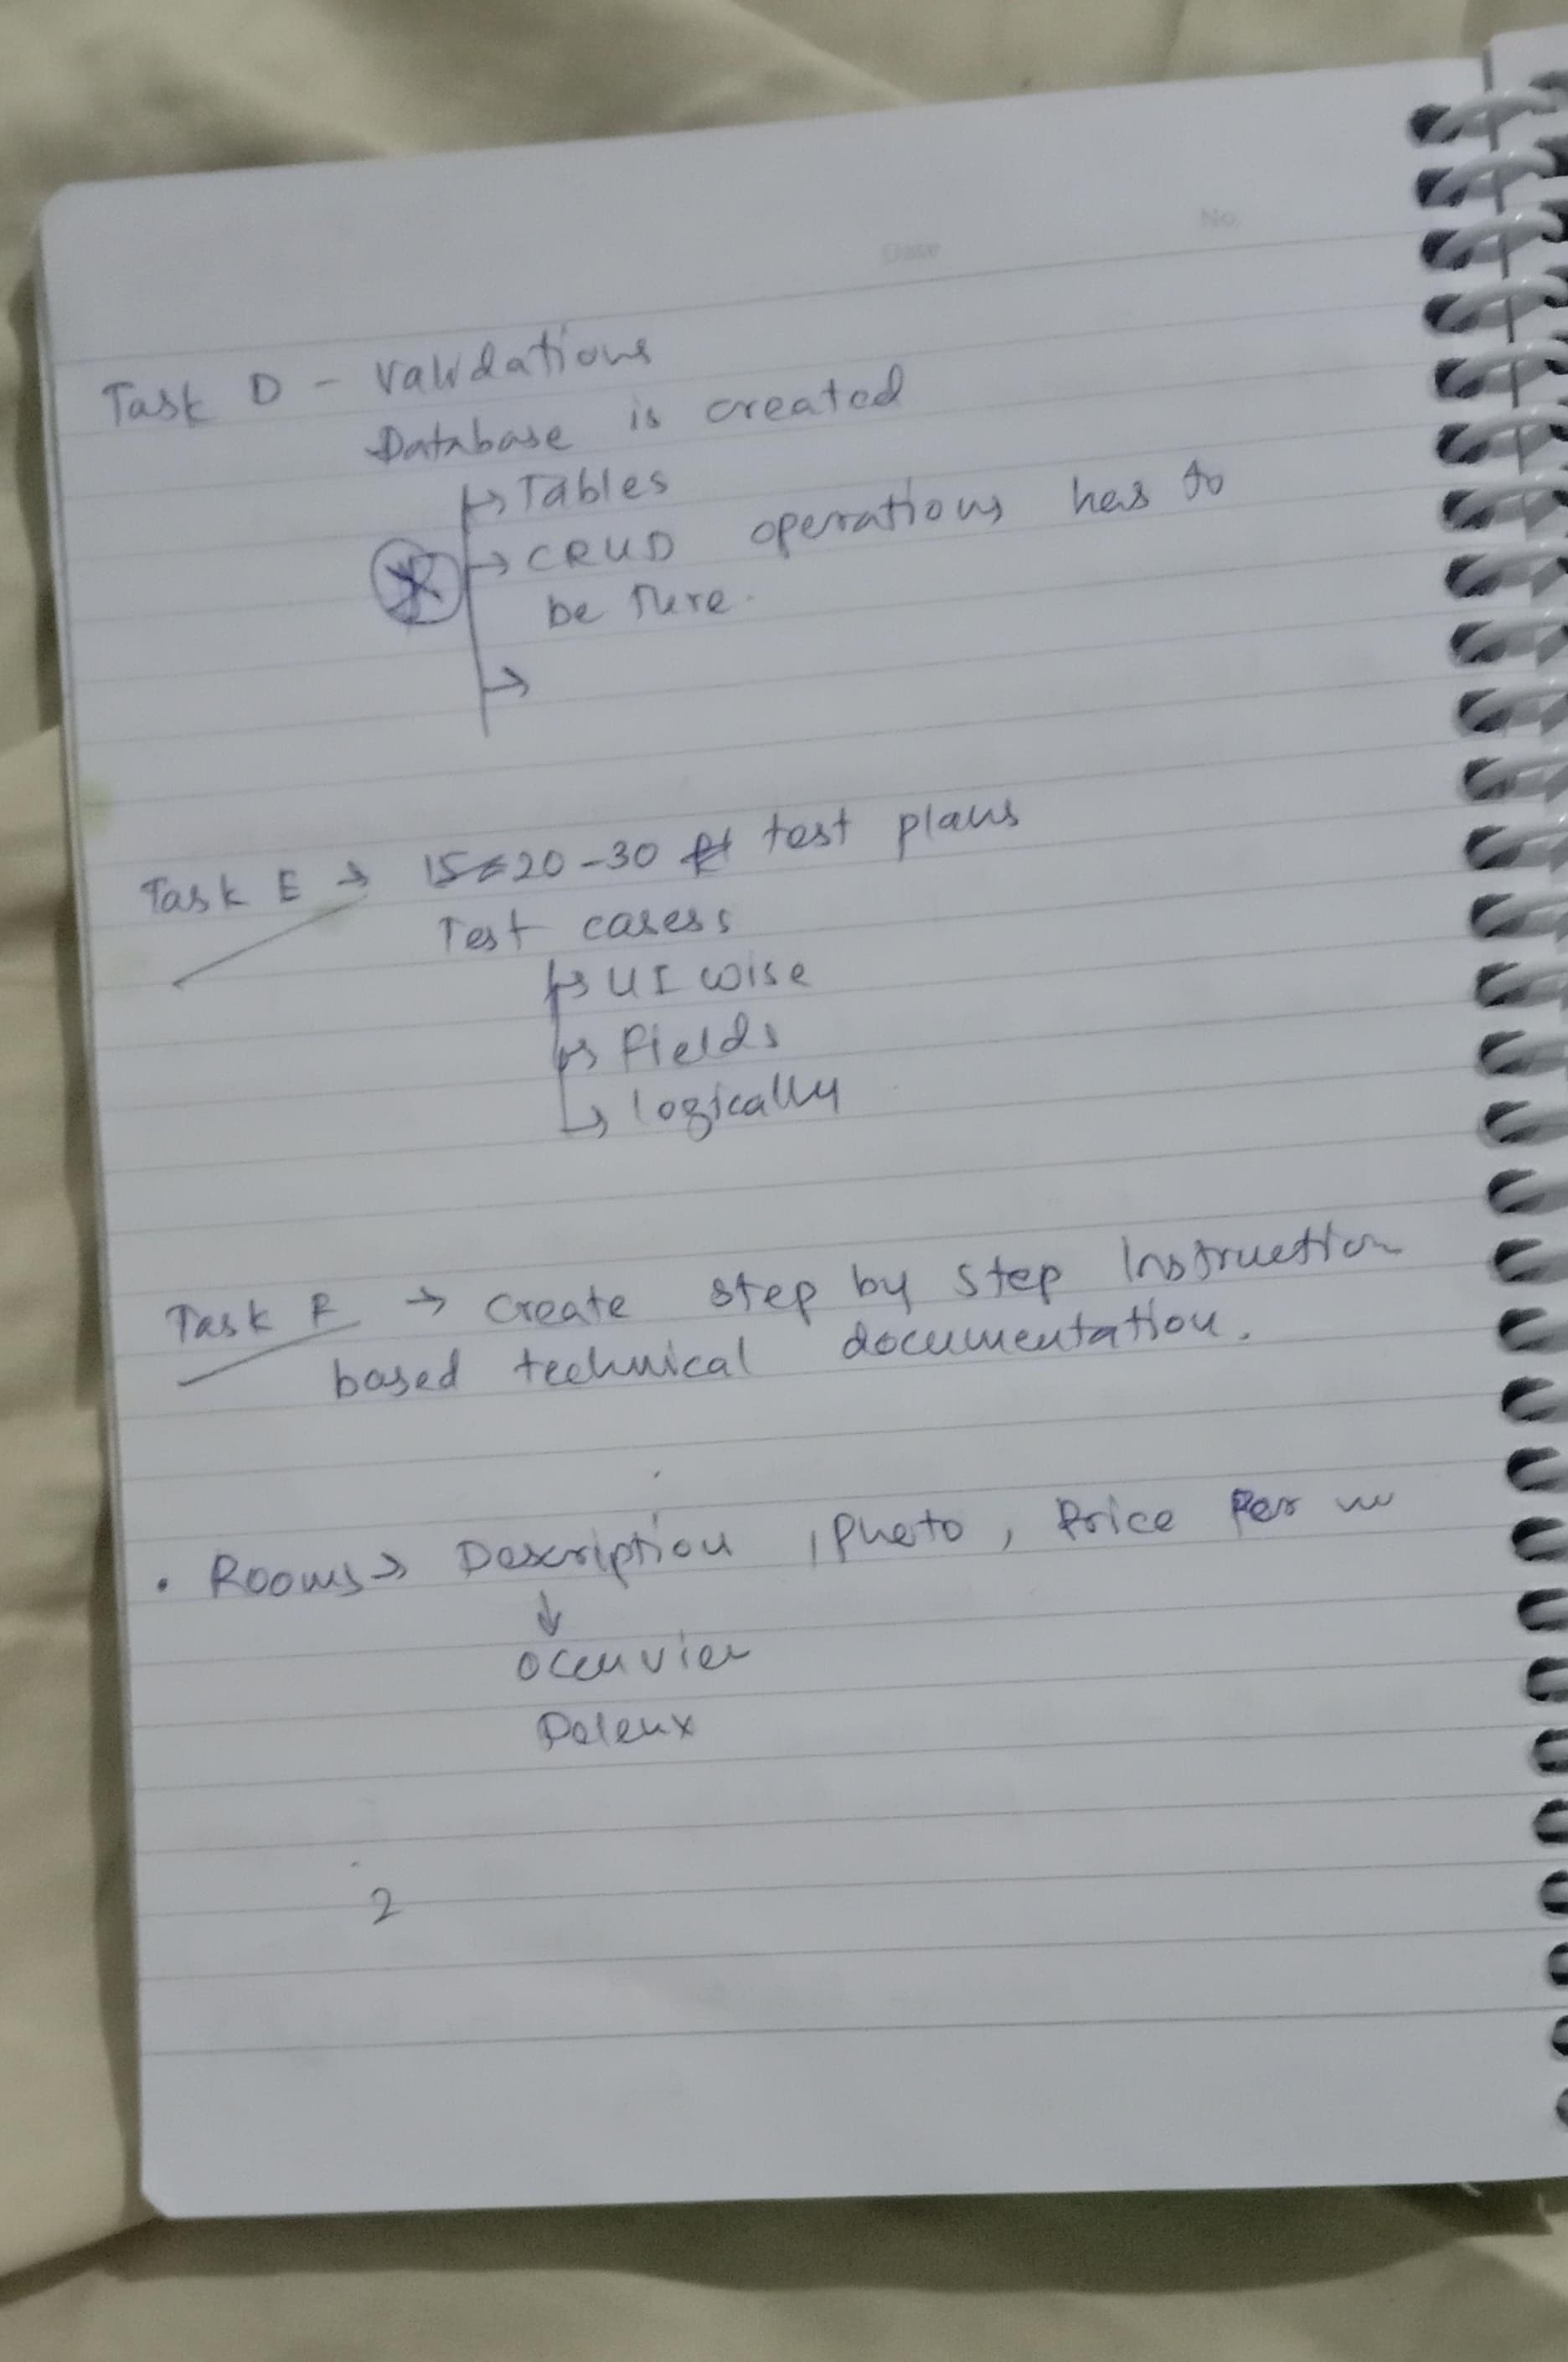 Date No.
Task D - Validations
Database is created
↳ Tables
→ CRUD operations has to
be there.
→
Task E → 15-20-30 test plans
Test cases:
↳ UI wise
↳ Fields
↳ logically
Task F → Create step by step Instruction
based technical documentation.
• Rooms → Description , Photo , Price Per
↓
Deleux
2